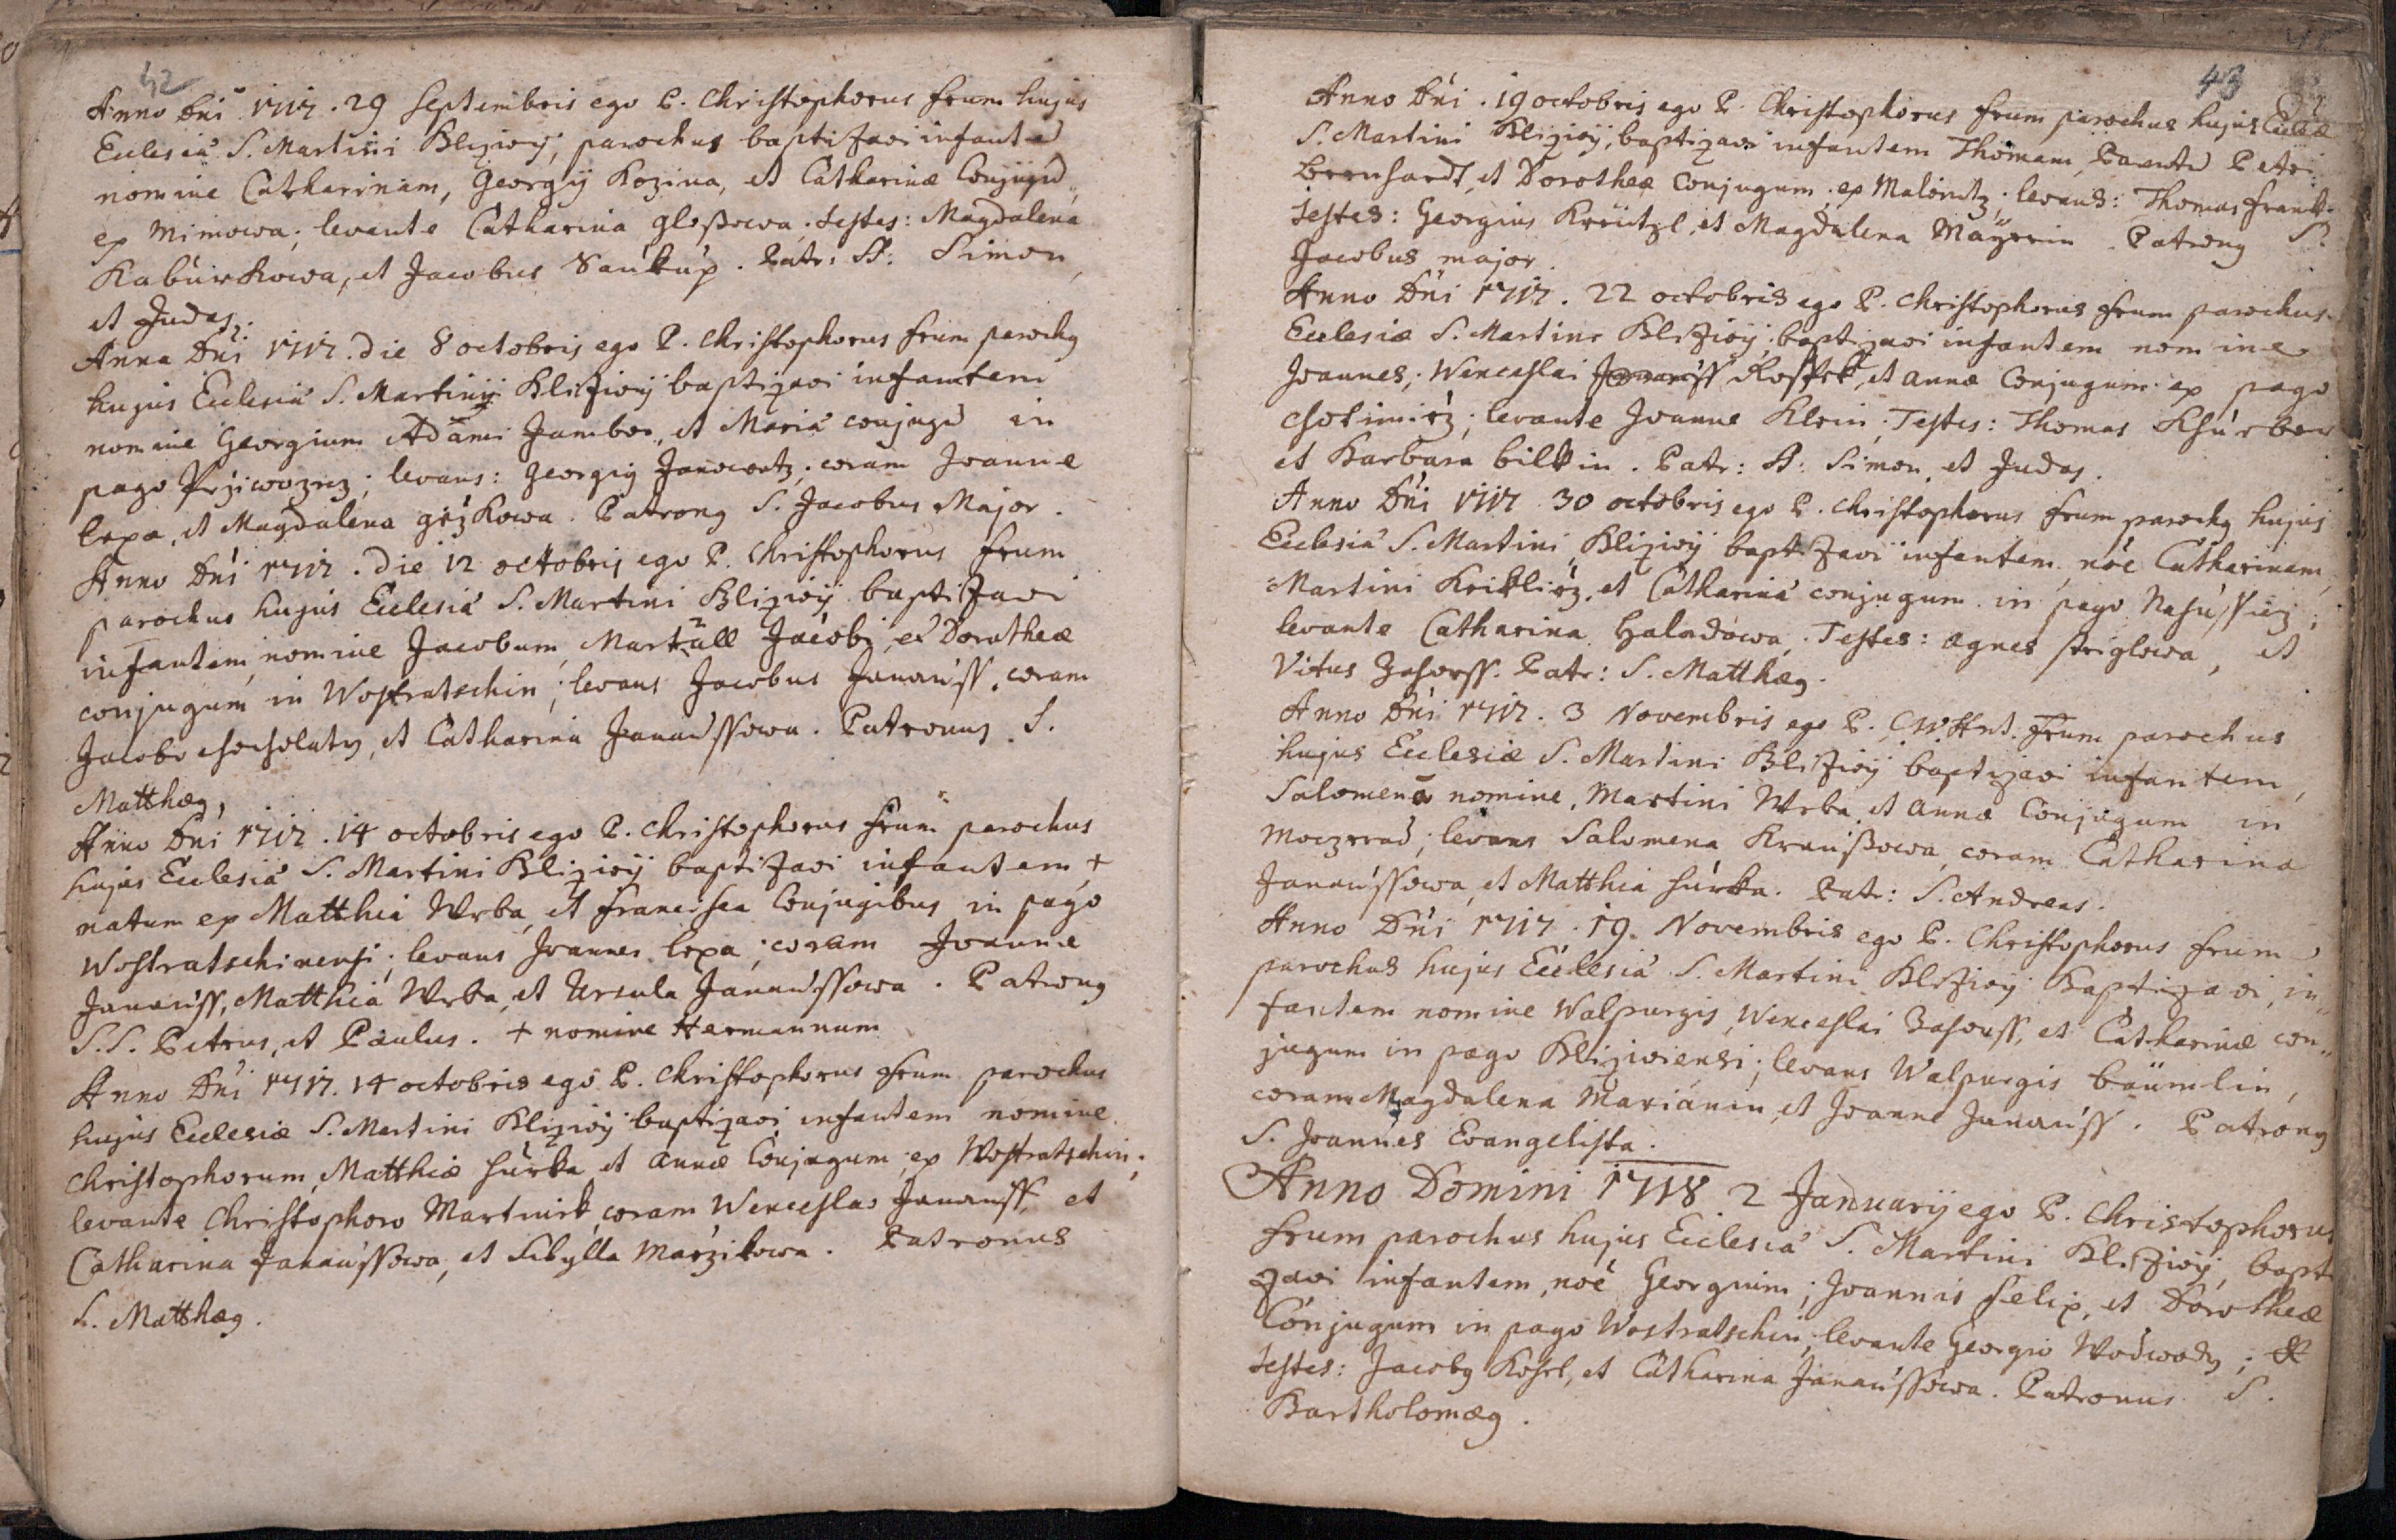 42
Anno Dni 1717. 29 Septembris ego P. Christophorus Frum hujus
Eclesiæ S. Martini Blizivij, parochus baptizavi infantē
nomine Catharinam, Georgij Kozina, et Catharinæ Conjugū
ex Mimowa; levante Catharina gloßowa. testes: Magdalena
Kabúrkowa, et Jacobus Saukúp. Patr: SS: Simon,
et Judas.
Anna Dni 1717. die 8 octobris ego P. Christophorus Frum parochq
hujus Eclesiæ S. Martinij Blizivij baptizavi infantem
nomine Georgium Adami Jambor, et Mariæ conjugū in
pago Prziwozecz; levans: Georgiq Janowetz; coram Joanne
lexa, et Magdalena gizkowa. Patronq S. Jacobus Major.
Anno Dni 1717. die 12 octobris ego P. Christophorus Frum
parochus hujus Eclesiæ S. Martini Blizivij baptizavi
infantem nomine Jacobum, Martall Jacobi, et Dorotheæ
conjugum in Wostratschin; levans Jacobus Janauss, coram
Jacobo chocholaty, et Catharina Janaussowa. Patronus S.
Matthæq,
Anno Dni 1717. 14 octobris ego P. Christophorus Frum parochus
hujus Eclesiæ S. Martini Blizivij baptizavi infantem, +
natum ex Matthia Wrba, et Francisca Conjugibus in pago
Wostratschinensi; levans Joannes lexa; coram Joanne
Janauss, Matthia Wrba, et Ursula Janaussowa. Patronq
S.S. Petrus, et Paulus. + nomine Hermannum
Anno Dni 1717. 14 octobris ego P. Christophorus Frum parochus
hujus Eclesiæ S. Martini Blizivij baptizavi infantem nomine
Christophorum, Matthiæ húrka et Annæ Conjugum, ex Wostratschin;
levante Christophoro Martinik, coram Wenceslao Janauss, et
Catharina Janaussowa, et Sibylla Marzikowa. Patronus
S. Matthæq.
43
Anno Dni. 19 octobris ego P. Christophorus Frum parochus hujus Eccleæ
S. Martini Blizivij, baptizavi infantem Thomam, Parentū Petri
Bernhardt, et Dorotheæ Conjugum, ex Malonitz; levans: Thomas Frank.
testes: Georgius Kreutzl, et Magdalena Mayerin. Patronq S.
Jacobus major.
Anno Dni 1717. 22 octobris ego P. Christophorus Frum parochus
Eclesiæ S. Martini Blizivij, baptizavi infantem nomine
Joannes, Wenceslai Janauss Kossek, et Annæ Conjugum ex pago
chotimirz; levante Joanne Klein; Testes: Thomas
et Barbara bilkin. Patr: SS: Simon, et Judas.
Anno Dni 1717 30 octobris ego P. Christophorus Frum parochq hujus
Eclesiæ S. Martini Blizivij baptizavi infantem, nōe Catharinam,
Martini Kriklirz, et Catharinæ conjugum in pago Nahússicz;
levante Catharina Haladowa. Testes: Agnes striglowa, et
Vitus Zahorss. Patr: S. Matthæq.
Anno Dni 1717. 3 Novembris ego P. Frum parochus
hujus Eclesiæ S. Martini Blizivij baptizavi infantem,
Salomenā nomine, Martini Wrba, et Annæ Conjugum in
Moczerad; levans Salomena Kraußowa, coram Catharina
Janaussowa, et Matthia húrka. Patr: S. Andreas.
Anno Dni 1717. 19. Novembris ego P. Christophorus Frum
parochus hujus Eclesiæ S. Martini Blizivij Baptizavi, in„
fantem nomine Walpurgis, Wenceslai Zahorss, et Catharinæ con„
jugum in pago Bliziviensi; levans Walpurgis bäumlin,
coram Magdalena Marianin, et Joanne Janauss. Patronq
S. Joannes Evangelista.
Anno Domini 1718 2 Januarij ego P. Christophorus
Frum parochus hujus Eclesiæ S. Martini Blizivij, bapti
zavi infantem, nōe Georgium; Joannis Felix, et Dorotheæ
Conjugum in pago Wostratschin, levante Georgio Wodwody; et
testes: Jacobq Kosel, et Catharina Janaussowa. Patronus S.
Bartholomæq.